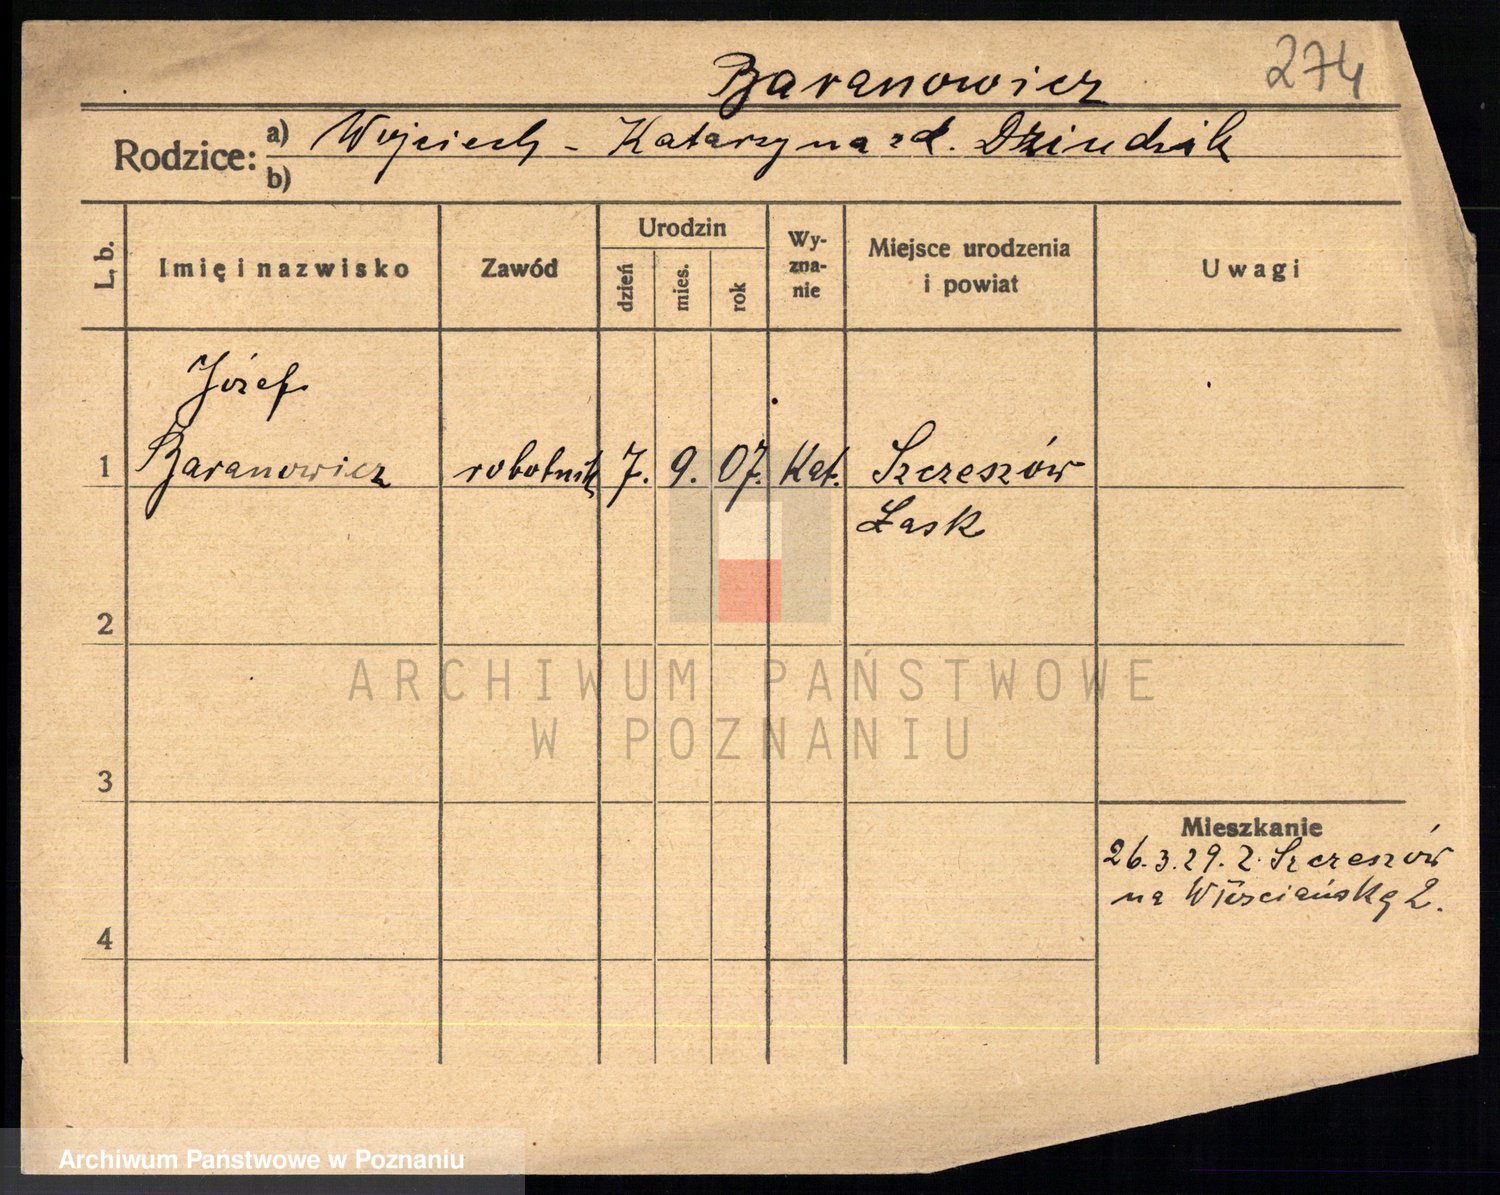 274
Baranowicz
Rodzice: a) Wojciech - Katarzyna zd. Dziudzik
b)
L. b. Imię i nazwisko Zawód Urodzin dzień mies. rok Wy-zna-nie Miejsce urodzenia i powiat Uwagi
Józef
1 Baranowicz robotnik 7. 9. 07. Kat. Szczeszów
Łask
2
ARCHIWUM PAŃSTWOWE
W POZNANIU
3
Mieszkanie
26.3.29. z Szczeszów
na Włościańską 2.
4
Archiwum Państwowe w Poznaniu